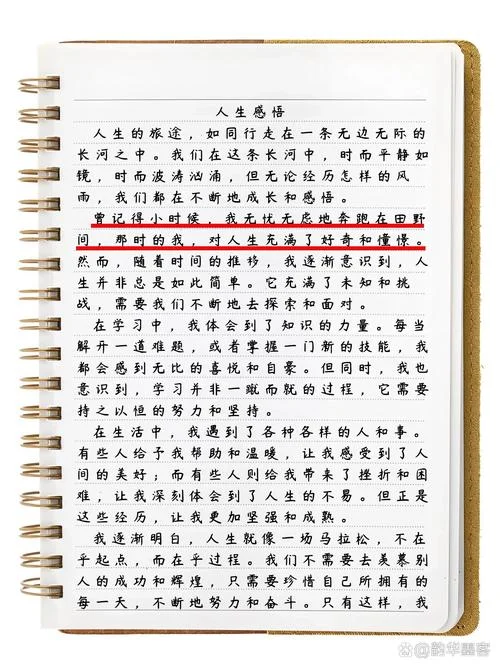 人生感悟
人生的旅途，如同行走在一条无边无际的
长河之中。我们在这条长河中，时而平静如
镜，时而波涛汹涌，但无论经历怎样的风
雨，我们都在不断地成长和感悟。
曾记得小时候，我无忧无虑地奔跑在田野
间，那时的我，对人生充满了好奇和憧憬。
然而，随着时间的推移，我逐渐意识到，人
生并非总是如此简单。它充满了未知和挑
战，需要我们不断地去探索和面对。
在学习中，我体会到了知识的力量。每当
解开一道难题，或者掌握一门新的技能，我
都会感到无比的喜悦和自豪。但同时，我也
意识到，学习并非一蹴而就的过程，它需要
持之以恒的努力和坚持。
在生活中，我遇到了各种各样的人和事。
有些人给予我帮助和温暖，让我感受到了人
间的美好；而有些人则给我带来了挫折和困
难，让我深刻体会到了人生的不易。但正是
这些经历，让我更加坚强和成熟。
我逐渐明白，人生就像一场马拉松，不在
乎起点，而在乎过程。我们不需要去羡慕别
人的成功和辉煌，只需要珍惜自己所拥有的
每一天，不断地努力和奋斗。只有这样，我
韵华墨客